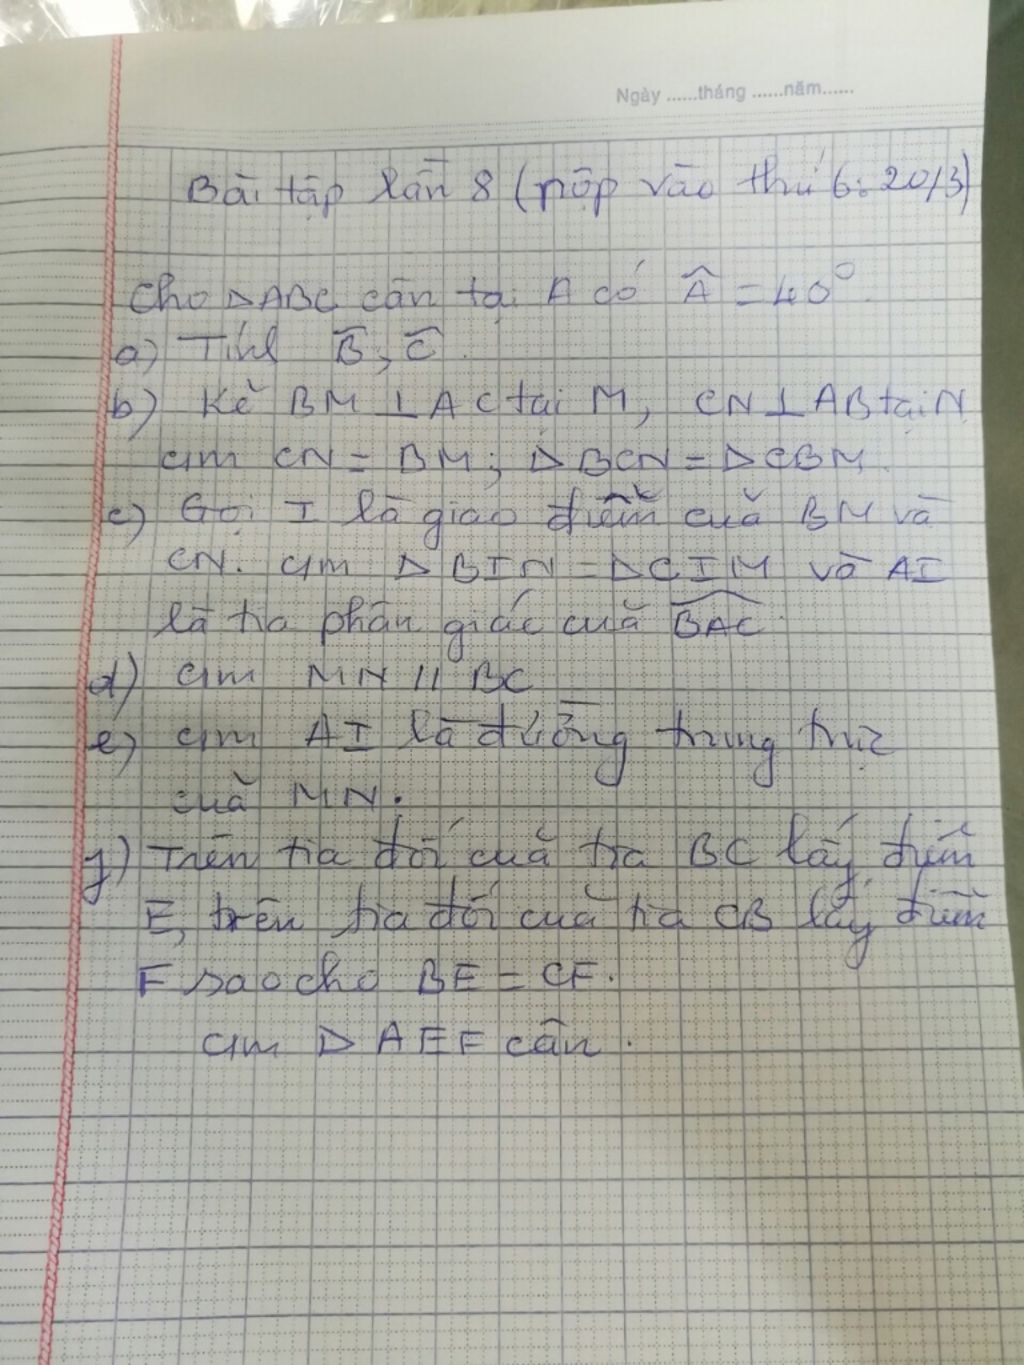 Ngày ......tháng ......năm......
Bài tập lần 8 (nộp vào thứ 6: 20/3)
Cho ΔABC cân tại A có Â = 40°
a) Tính B̂, Ĉ.
b) Kẻ BM ⊥ AC tại M, CN ⊥ AB tại N
cm CN = BM; ΔBCN = ΔCBM.
c) Gọi I là giao điểm của BM và
CN. cm ΔBIN = ΔCIM và AI
là tia phân giác của BAC.
d) cm MN // BC
e) cm AI là đường trung trực
của MN.
g) Trên tia đối của tia BC lấy điểm
E, trên tia đối của tia CB lấy điểm
F sao cho BE = CF.
cm Δ AEF cân.